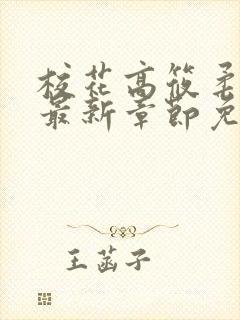 校花高筱柔
最新章節免
王菡子